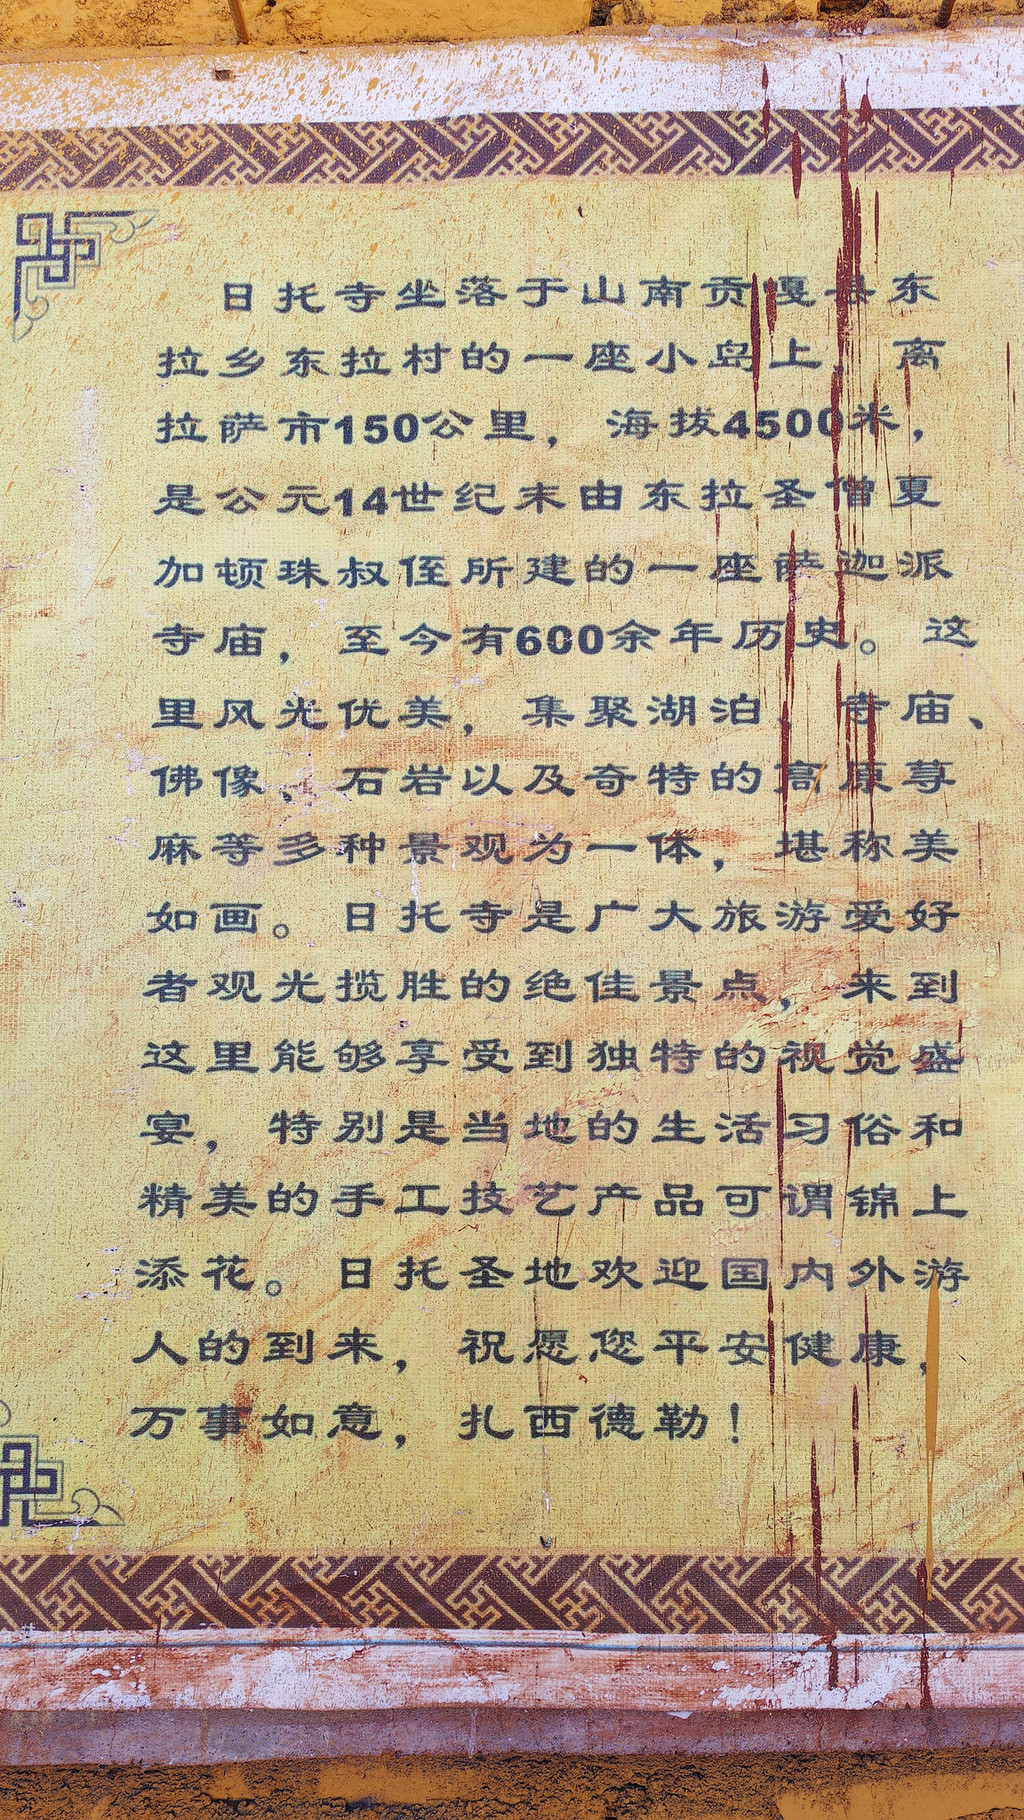 日托寺坐落于山南贡嘎县东
拉乡东拉村的一座小岛上，离
拉萨市150公里，海拔4500米，
是公元14世纪末由东拉圣僧夏
加顿珠叔侄所建的一座萨迦派
寺庙，至今有600余年历史。这
里风光优美，集聚湖泊、寺庙、
佛像、石岩以及奇特的高原荨
麻等多种景观为一体，堪称美
如画。日托寺是广大旅游爱好
者观光揽胜的绝佳景点，来到
这里能够享受到独特的视觉盛
宴，特别是当地的生活习俗和
精美的手工技艺产品可谓锦上
添花。日托圣地欢迎国内外游
人的到来，祝愿您平安健康，
万事如意，扎西德勒！